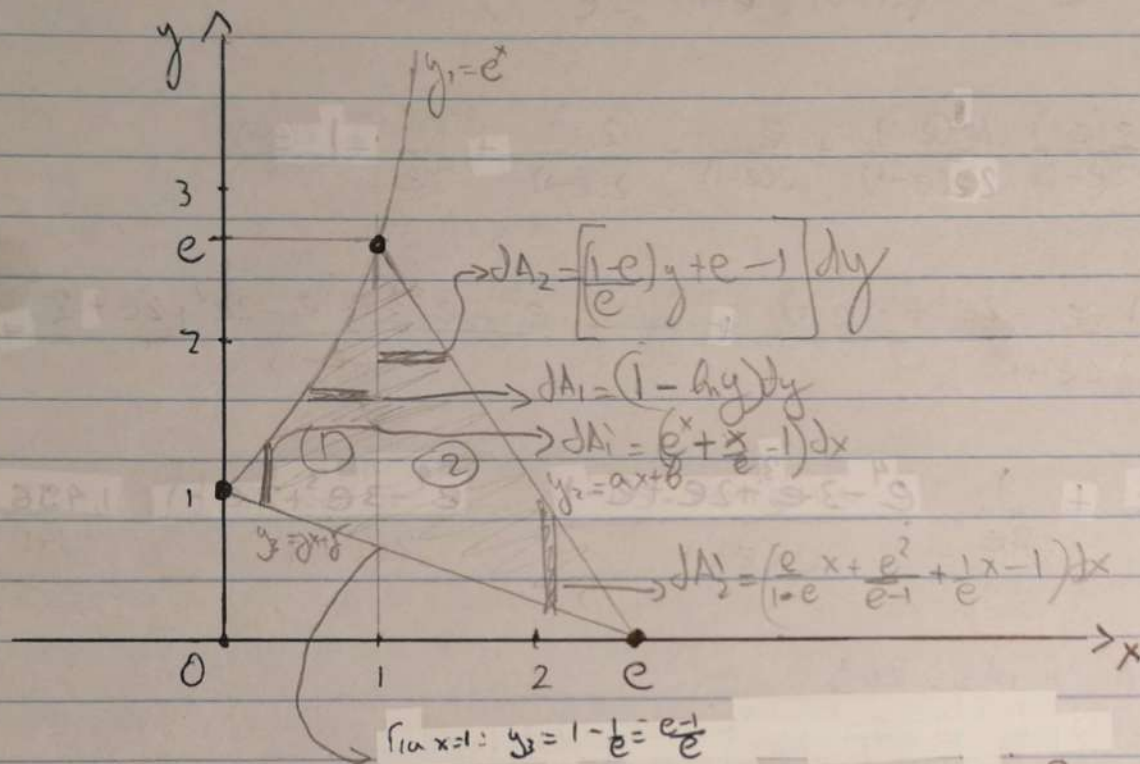 y
y₁=eˣ
3
e
dA₂=[(1-e)/e)y+e-1]dy
2
dA₁=(1-lny)dy
① dA₁'=(eˣ+x/e-1)dx
②
y₂=ax+β
1
y₃=γx+δ
dA₂'=(e/(1-e)x+e²/(e-1)+1/e x-1)dx
0 1 2 e x
Για x=1: y₃=1-1/e=(e-1)/e